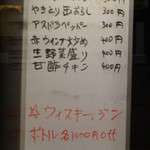 やきとり缶おろし 300円
アスパラペッパー 300円
赤ウインナ炒め 400円
生野菜盛り 400円
甘酢チキン 400円
ウィスキー、ジン
ボトル各1000円off